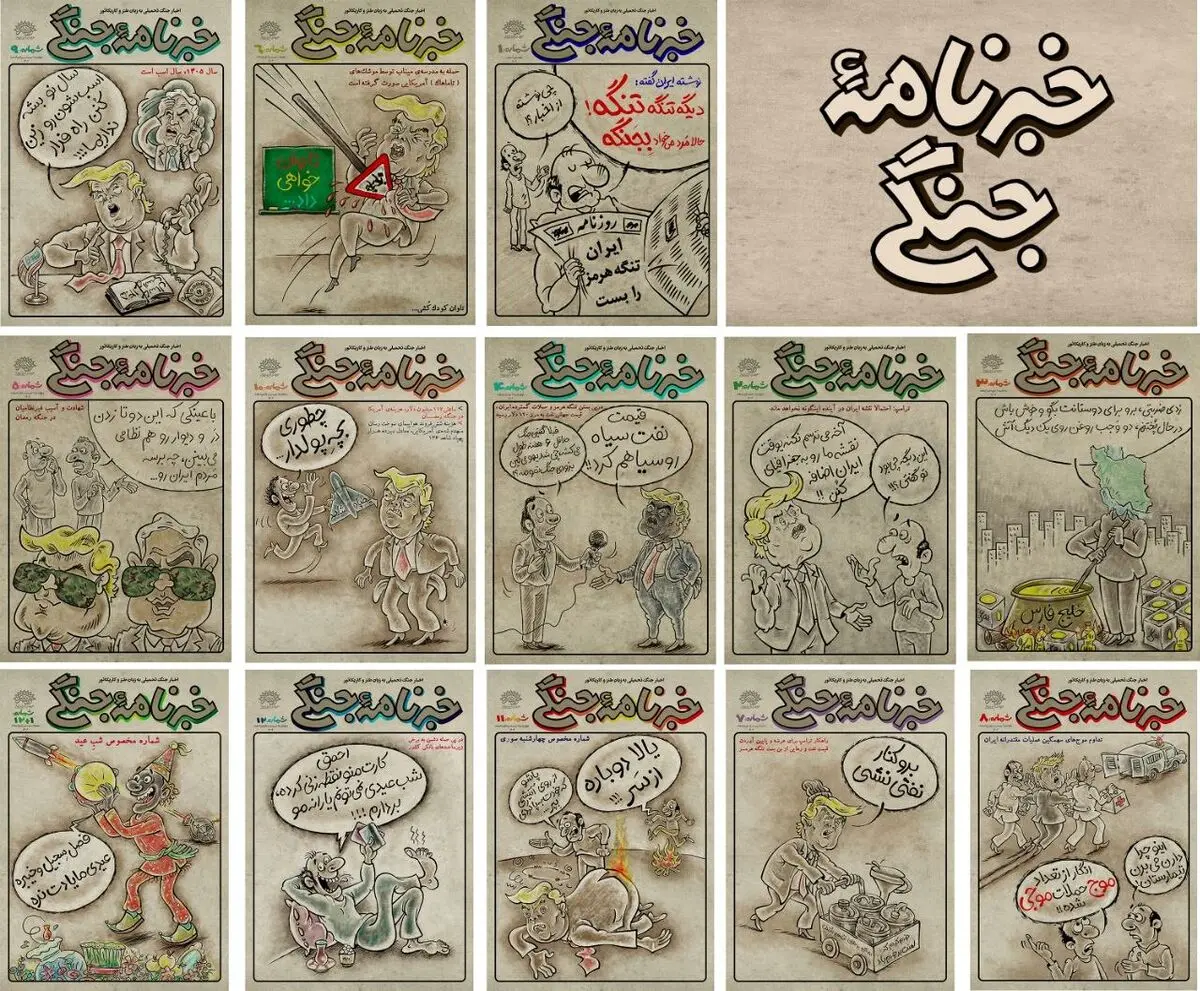 اخبار جنگ تحمیلی به زبان طنز و کاریکاتور
خبرنامهٔ جنگی
شماره ۹
سال ۱۴۰۵، سال اسب است
سال نو بشه
اسب شون رو زین
کنن راه فرار
نداریما!!!
اخبار جنگ تحمیلی به زبان طنز و کاریکاتور
خبرنامهٔ جنگی
شماره ۶
حمله به مدرسه‌ی میناب توسط موشک‌های
(تاماهاک) آمریکایی صورت گرفته است
خواهی
داد...
تاوان کودک کُشی...
اخبار جنگ تحمیلی به زبان طنز و کاریکاتور
خبرنامهٔ جنگی
شماره ۱
چی نوشته
از اخبار؟!
نوشته ایران گفته:
دیگه تنگه تنگه!
حالا مَرد می‌خواد بجنگه
روزنامه
ایران
تنگه هرمز
را بست
خبرنامهٔ
جنگی
اخبار جنگ تحمیلی به زبان طنز و کاریکاتور
خبرنامهٔ جنگی
شماره ۵
شهادت و آسیب غیرنظامیان
در جنگ رمضان
با عینکی که این دو تا زدن
در و دیوار رو هم نظامی
می‌بینن، چه برسه
مردم ایران رو...
اخبار جنگ تحمیلی به زبان طنز و کاریکاتور
خبرنامهٔ جنگی
شماره ۱۰
چطوری
بچه پولدار...
اخبار جنگ تحمیلی به زبان طنز و کاریکاتور
خبرنامهٔ جنگی
شماره ۴
در پی بستن تنگه هرمز و حملات گسترده ایران،
قیمت
نفت سیاه
روسیاهم کرد!!
اخبار جنگ تحمیلی به زبان طنز و کاریکاتور
خبرنامهٔ جنگی
شماره ۲
ترامپ: احتمالا نقشه ایران در آینده اینگونه نخواهد ماند
آخه می ترسم نکنه یوقت
نقشه ما رو به جغرافیای
ایران اضافه
کنن!!
این دیگه چی بود
تو گفتی؟!!
اخبار جنگ تحمیلی به زبان طنز و کاریکاتور
خبرنامهٔ جنگی
شماره ۳
زدی ضربتی، برو برای دوستانت بگو و خوش باش
در حال پُختنم، دو وجب روغن روی یک دیگ آتش
خلیج فارس
اخبار جنگ تحمیلی به زبان طنز و کاریکاتور
خبرنامهٔ جنگی
شماره
شماره مخصوص شب عید
فصل سجیل و خیبره
عیدی ما یادت نره
اخبار جنگ تحمیلی به زبان طنز و کاریکاتور
خبرنامهٔ جنگی
شماره ۱۲
در پی حمله دشمن به برخی
زیرساخت‌های بانکی کشور
احمق
کارت منو نقطه زنی کرده،
شب عیدی نمی‌تونم یارانه مو
بردارم!!!!
اخبار جنگ تحمیلی به زبان طنز و کاریکاتور
خبرنامهٔ جنگی
شماره ۱۱
شماره مخصوص چهارشنبه سوری
یالا دوباره
از سَر!!!
اخبار جنگ تحمیلی به زبان طنز و کاریکاتور
خبرنامهٔ جنگی
شماره ۷
راهکار ترامپ برای عرضه و پایین آوردن
قیمت نفت و رهایی از بن بست تنگه هرمز
برو کنار
نفتی نشی
اخبار جنگ تحمیلی به زبان طنز و کاریکاتور
خبرنامهٔ جنگی
شماره ۸
تداوم موج‌های سهمگین عملیات مقتدرانه ایران
اینو چرا
دارن می برن
تیمارستان؟
انگار از تعداد
موج حملات موجی
شده!!